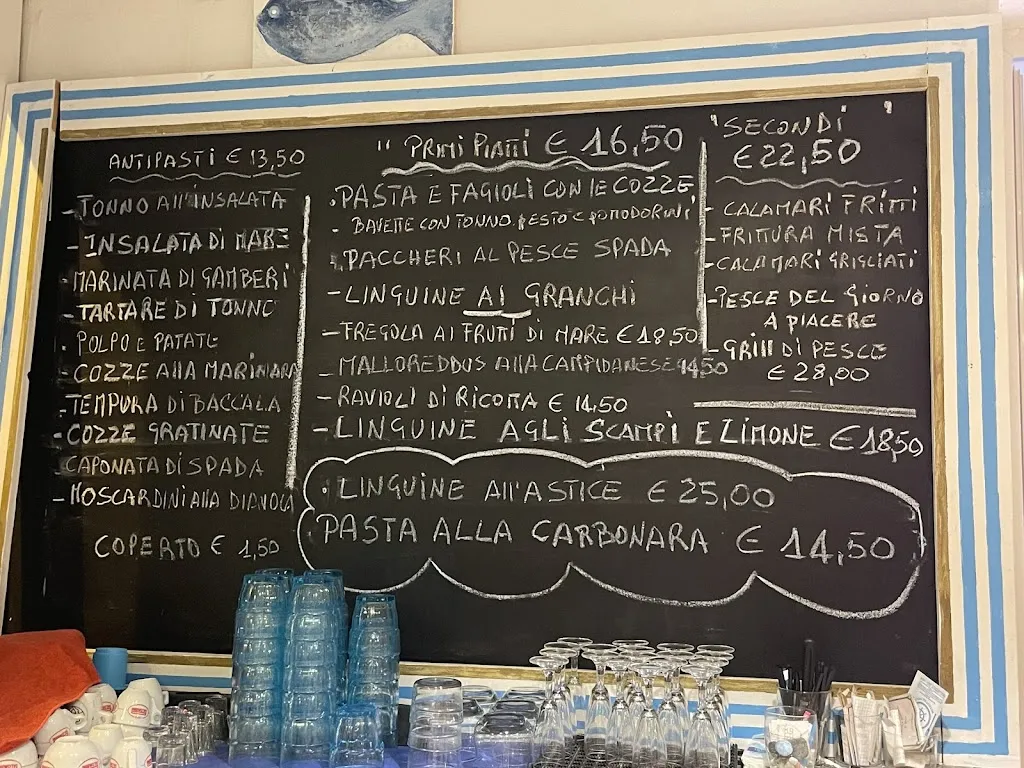 ANTIPASTI € 13,50
- TONNO All'INSALATA
- INSALATA DI MARE
- MARINATA DI GAMBERI
- TARTARE DI TONNO
· POLPO E PATATE
- COZZE AllA MARINARA
- TEMPURA DI BACCALA
- COZZE GRATINATE
CAPONATA DI SPADA
- MOSCARDINI AllA DIAVOLA
COPERTO € 1,50
" PRIMI PIATTI € 16,50
· PASTA E FAGIOLI CON lE COZZE
- BAVETTE CON TONNO PESTO E POMODORINI
· PACCHERI AL PESCE SPADA
- LINGUINE AI GRANCHI
- FREGOLA AI FRUTI DI MARE € 18,50
- MALLOREDDUS AllA CAMPIDANESE 14,50
- RAVIOLI DI RICOTTA € 14,50
- LINGUINE AGLI SCAMPI E LIMONE € 18,50
· LINGUINE All'ASTICE € 25,00
PASTA ALLA CARBONARA € 14,50
'SECONDI'
€ 22,50
- CALAMARI FRITTI
- FRITTURA MISTA
- CALAMARI GRIGLIATI
- PESCE DEL GIORNO
A PIACERE
- GRIll DI PESCE
€ 28,00